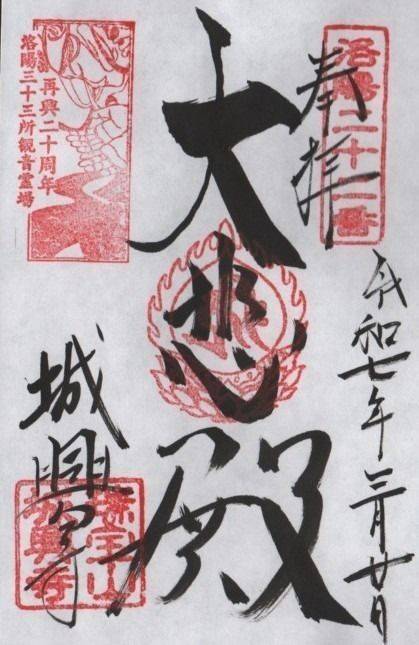 洛陽二十二番
奉拝
令和七年三月廿日
大悲殿
再興二十周年
洛陽三十三所観音霊場
城興寺
瑞宝山
城興寺